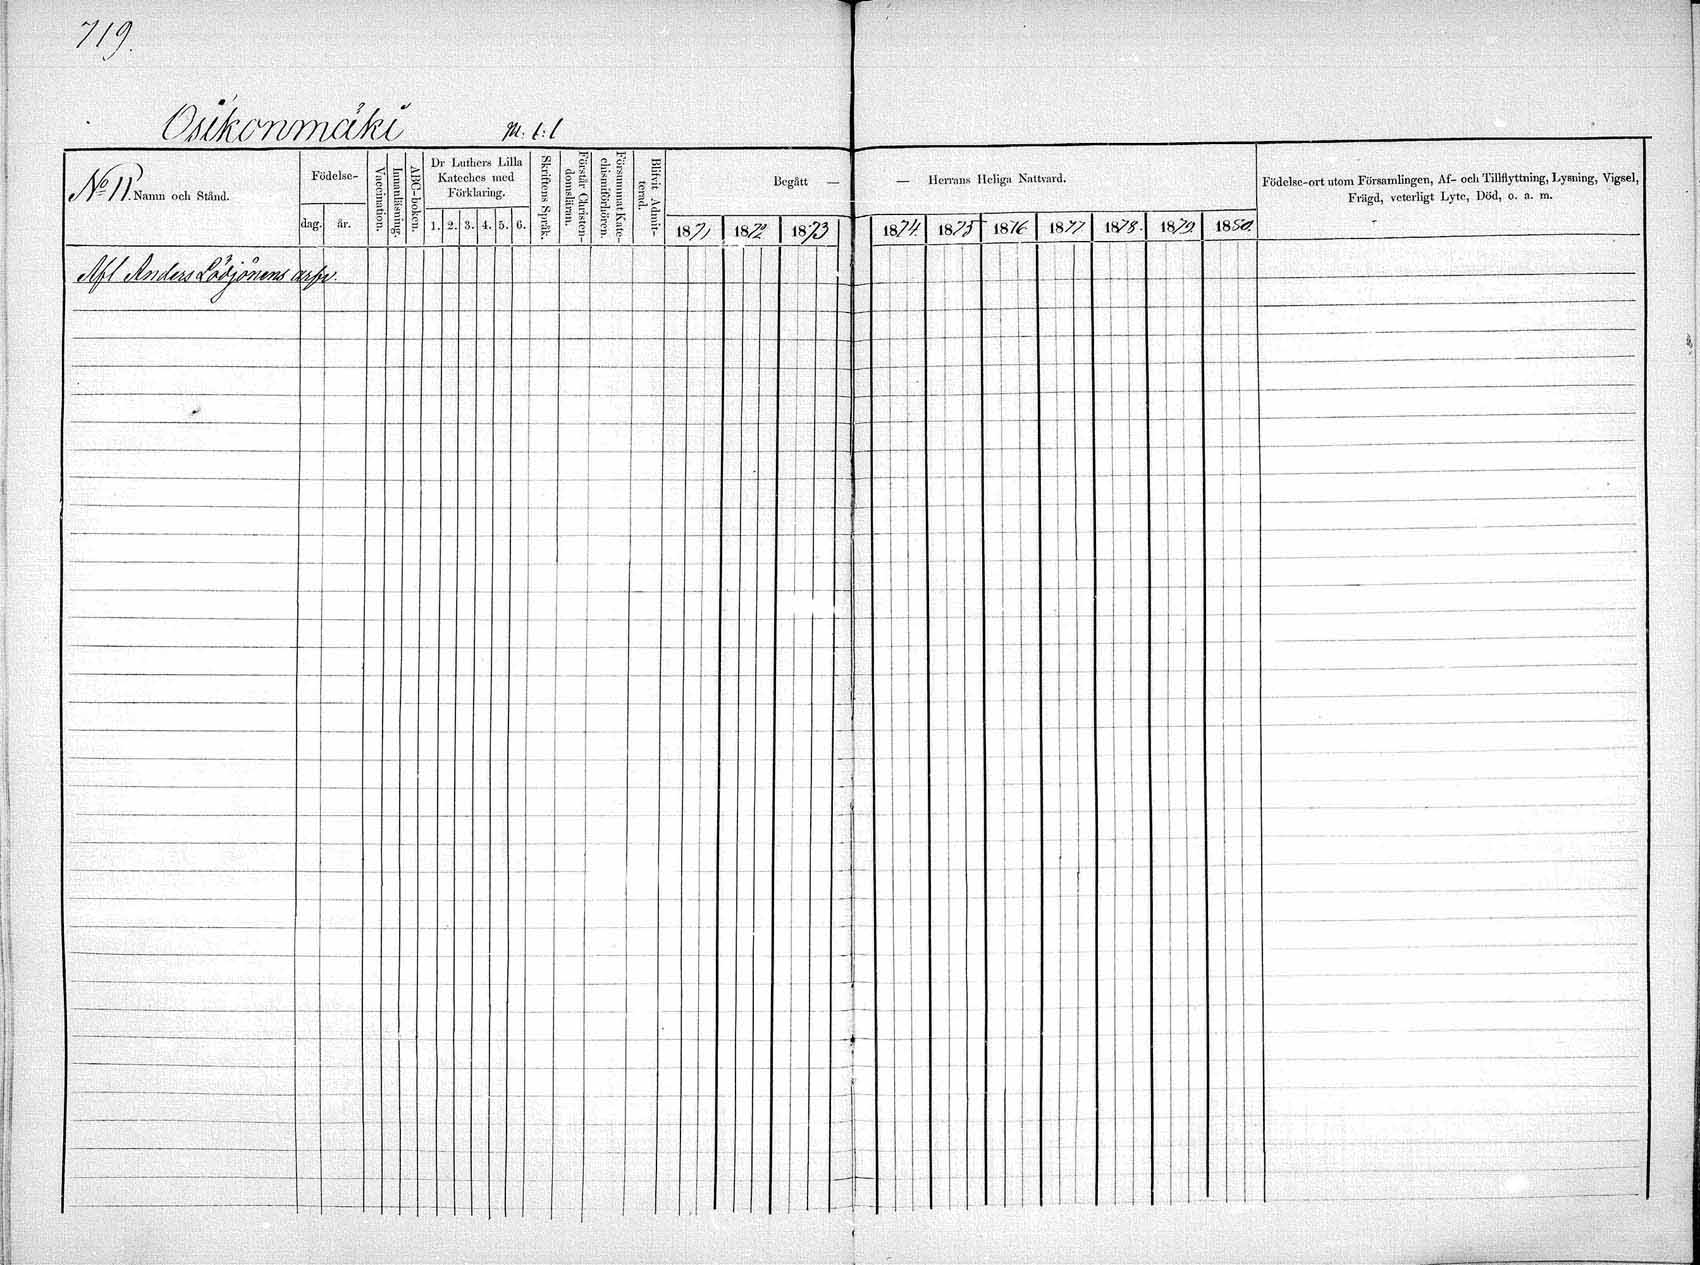 719.
Osikonmäki M. 1:1
No 11. Namn och Stånd.
Födelse-
dag. år.
Vaccination.
Innanläsning.
ABC-boken.
Dr Luthers Lilla
Kateches med
Förklaring.
1. 2. 3. 4. 5. 6.
Skriftens Språk.
Förstår Christen-
domsläran.
Försummat Kate-
chismiförhören.
Blifvit Admit-
terad.
Begått —
— Herrans Heliga Nattvard.
1871 1872 1873 1874. 1875 1876 1877 1878. 1879 1880.
Födelse-ort utom Församlingen, Af- och Tillflyttning, Lysning, Vigsel,
Frägd, veterligt Lyte, Död, o. a. m.
Afl Anders Löijönens arfv.